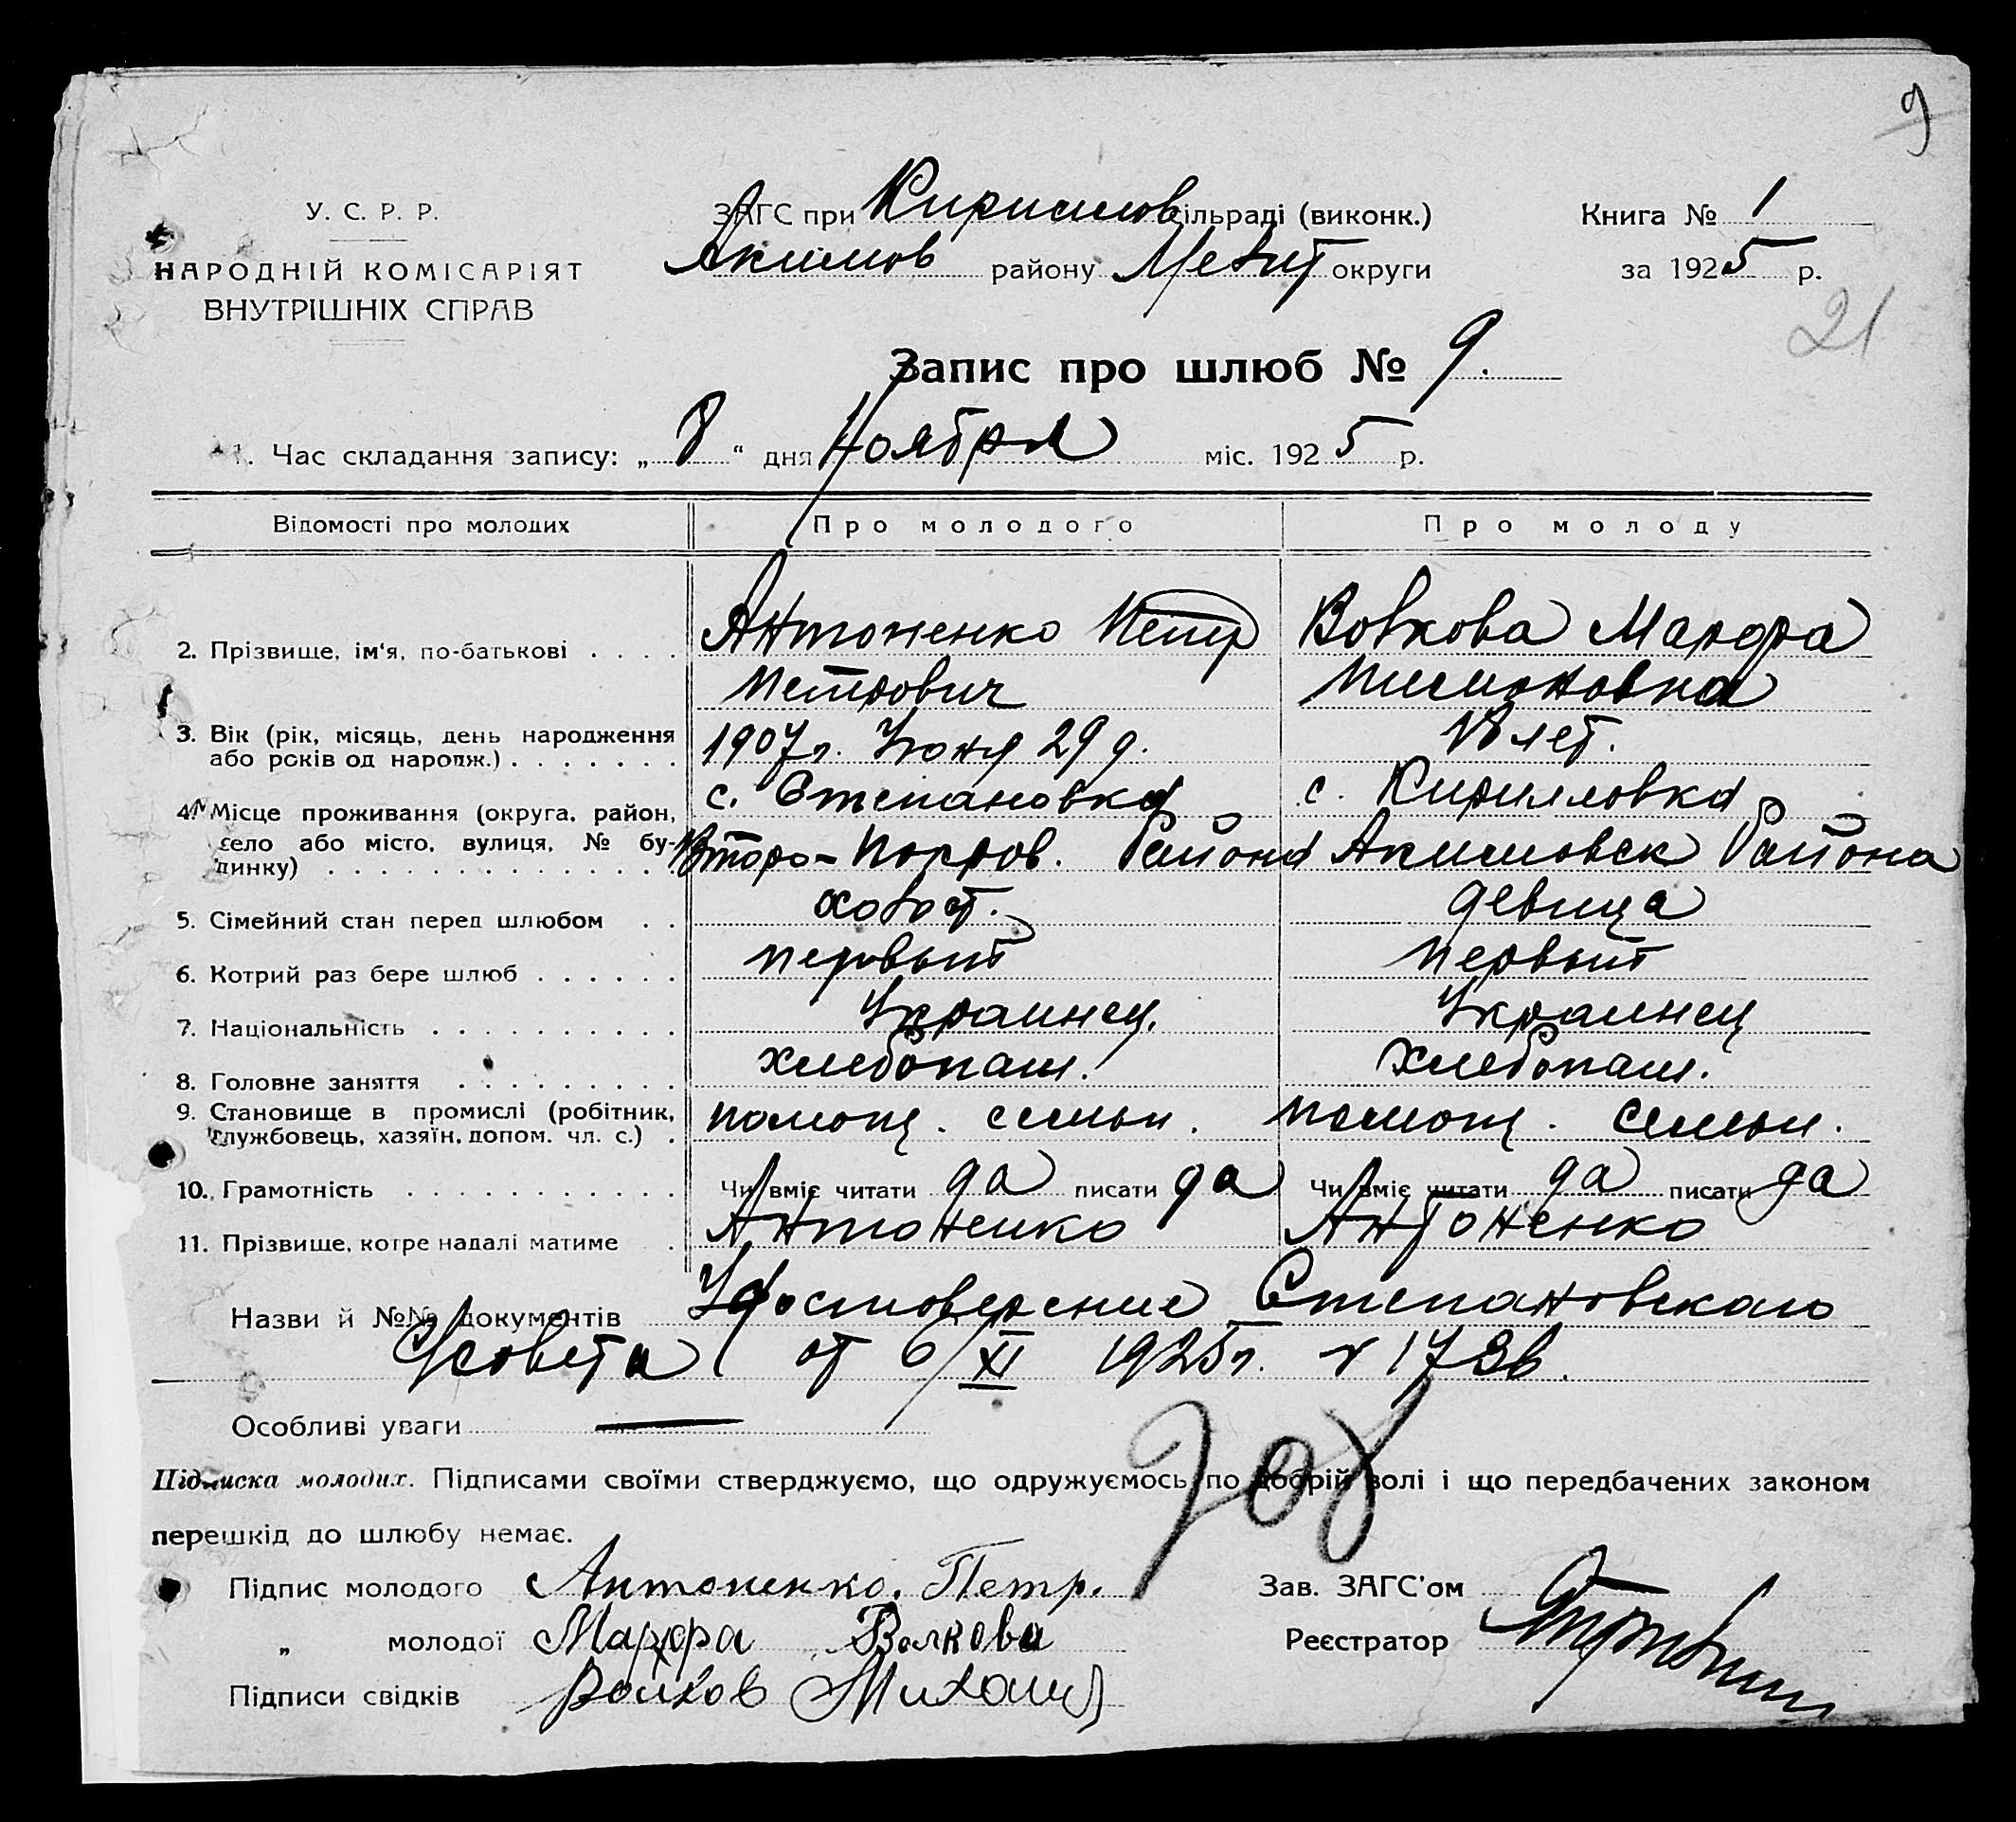 9
У. С. Р. Р.
НАРОДНІЙ КОМІСАРІЯТ
ВНУТРІШНІХ СПРАВ
ЗАГС при Кирилов сільраді (виконк.)
Акимов району Меліт округи
Книга № 1
за 1925 р.
21
Запис про шлюб № 9.
1. Час складання запису: „8“ дня Ноября міс. 1925 р.
Відомості про молодих Про молодого Про молоду
2. Прізвище, ім'я, по-батькові . . . . Антоненко Петр Вовкова Марфа
Петрович
3. Вік (рік, місяць, день народження
або років од народж.) . . . . . . . 1907 г. Июня 29 д. 18 лет.
4. Місце проживання (округа, район, с. Степановка с. Кирилловка
село або місто, вулиця, № бу-
динку) . . . . . . . . . . . . . . Второ-Покров. Района Акимовск Района
5. Сімейний стан перед шлюбом . . холост. девица
6. Котрий раз бере шлюб . . . . . . первый первый
7. Національність . . . . . . . . . . Украинец. Украинец
8. Головне заняття . . . . . . . . . хлебопаш. хлебопаш.
9. Становище в промислі (робітник,
службовець, хазяїн, допом. чл. с.) . помощ. семьи. помощ. семьи.
10. Грамотність . . . . . . . . . . . Чи вміє читати да писати да Чи вміє читати да писати да
11. Прізвище, котре надалі матиме . Антоненко Антоненко
Назви й №№ документів Удостоверение Степановского
С/совета от 6/XI 1925 г.
Особливі уваги —
Підписка молодих. Підписами своїми стверджуємо, що одружуємось по добрій волі і що передбачених законом
перешкід до шлюбу немає.
Підпис молодого Антоненко. Петр.
„ молодої Марфа Волкова
Підписи свідків Волков Михаил
Зав. ЗАГС'ом
Реєстратор